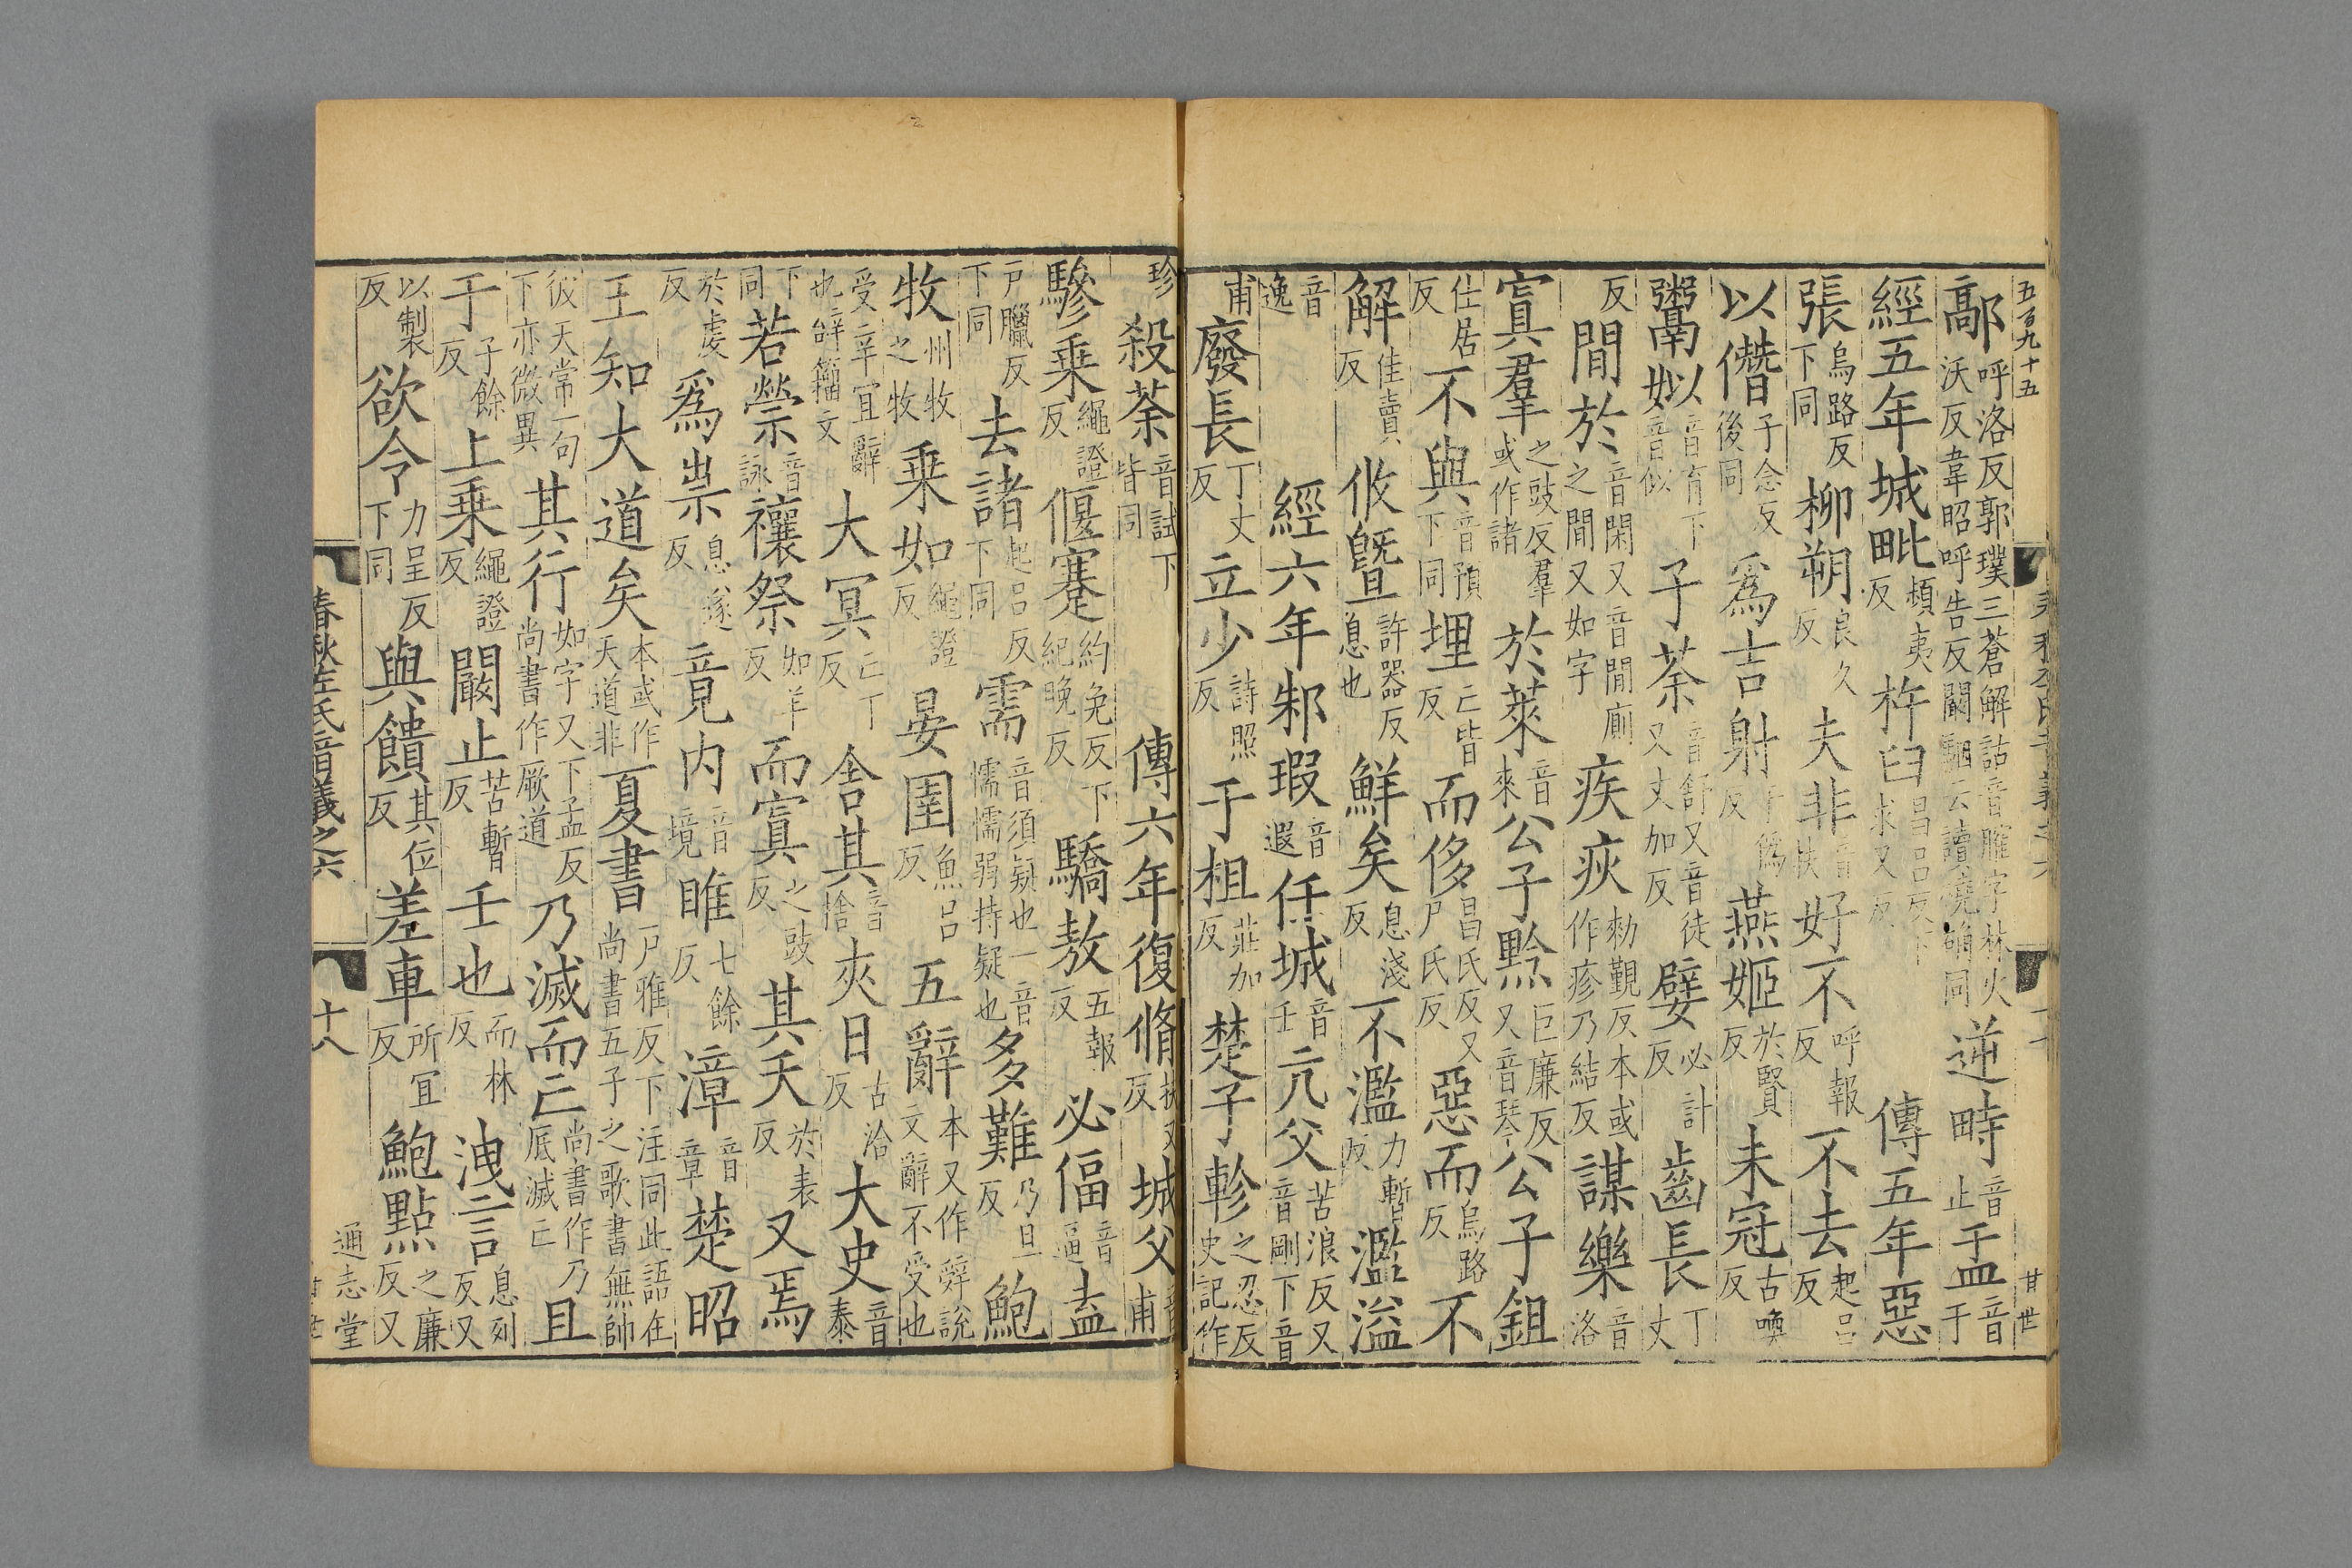 五百九十五
鄗呼洛反郭璞三蒼解詁音臛字林火沃反韋昭呼告反闞駰云讀磽确同逆畤音止盂音于
經五年城毗頻夷反杵臼昌呂反下求又反傳五年惡
張烏路反下同柳朔良久反夫非音扶好不呼報反不去起呂反
以僭子念反後同爲吉射于僞反燕姬於賢反未冠古喚反
鬻姒音育下音似子荼音舒又音徒又丈加反嬖必計反齒長丁丈
反間於音閑又音間廁之間又如字疾疢勑覲反本或作疹乃結反謀樂音洛
寘羣之豉反羣或作諸於萊音來公子黔巨廉反又音琴公子鉏
仕居反不與音預下同埋亡皆反而侈昌氏反又尸氏反惡而烏路反不
解佳賣反攸曁許器反息也鮮矣息淺反不濫力暫反濫溢
音逸經六年邾瑕音遐任城音壬亢父苦浪反又音剛下音
甫廢長丁丈反立少詩照反于柤莊加反楚子軫之忍反史記作
珍殺荼音試下皆同傳六年復脩扶又反城父音甫
驂乗繩證反偃蹇約免反下紀晚反驕敖五報反必偪音逼盍
戸臘反下同去諸起呂反下同需音須疑也一音懦懦弱持疑也多難乃旦反鮑
牧州牧之牧乗如繩證反晏圉魚呂反五辭本又作辤說文辭不受也
受辛冝辭也辝籀文大冥亡丁反舍其音捨夾日古洽反大史音泰
下同若禜音詠禳祭如羊反而寘之豉反其夭於表反又焉
於虔反爲祟息遂反竟内音境睢七餘反漳音章楚昭
王知大道矣本或作天道非夏書戸雅反下注同此語在尚書五子之歌書無帥
彼天常一句下亦微異其行如字又下孟反尚書作厥道乃滅而亡尚書作乃厎滅亡且
于子餘反上乗繩證反闞止苦暫反壬也而林反洩言息列反又
以製反欲令力呈反下同與饋其位反差車所冝反鮑點之廉反又
春秋左氏音義之六 十八 通志堂